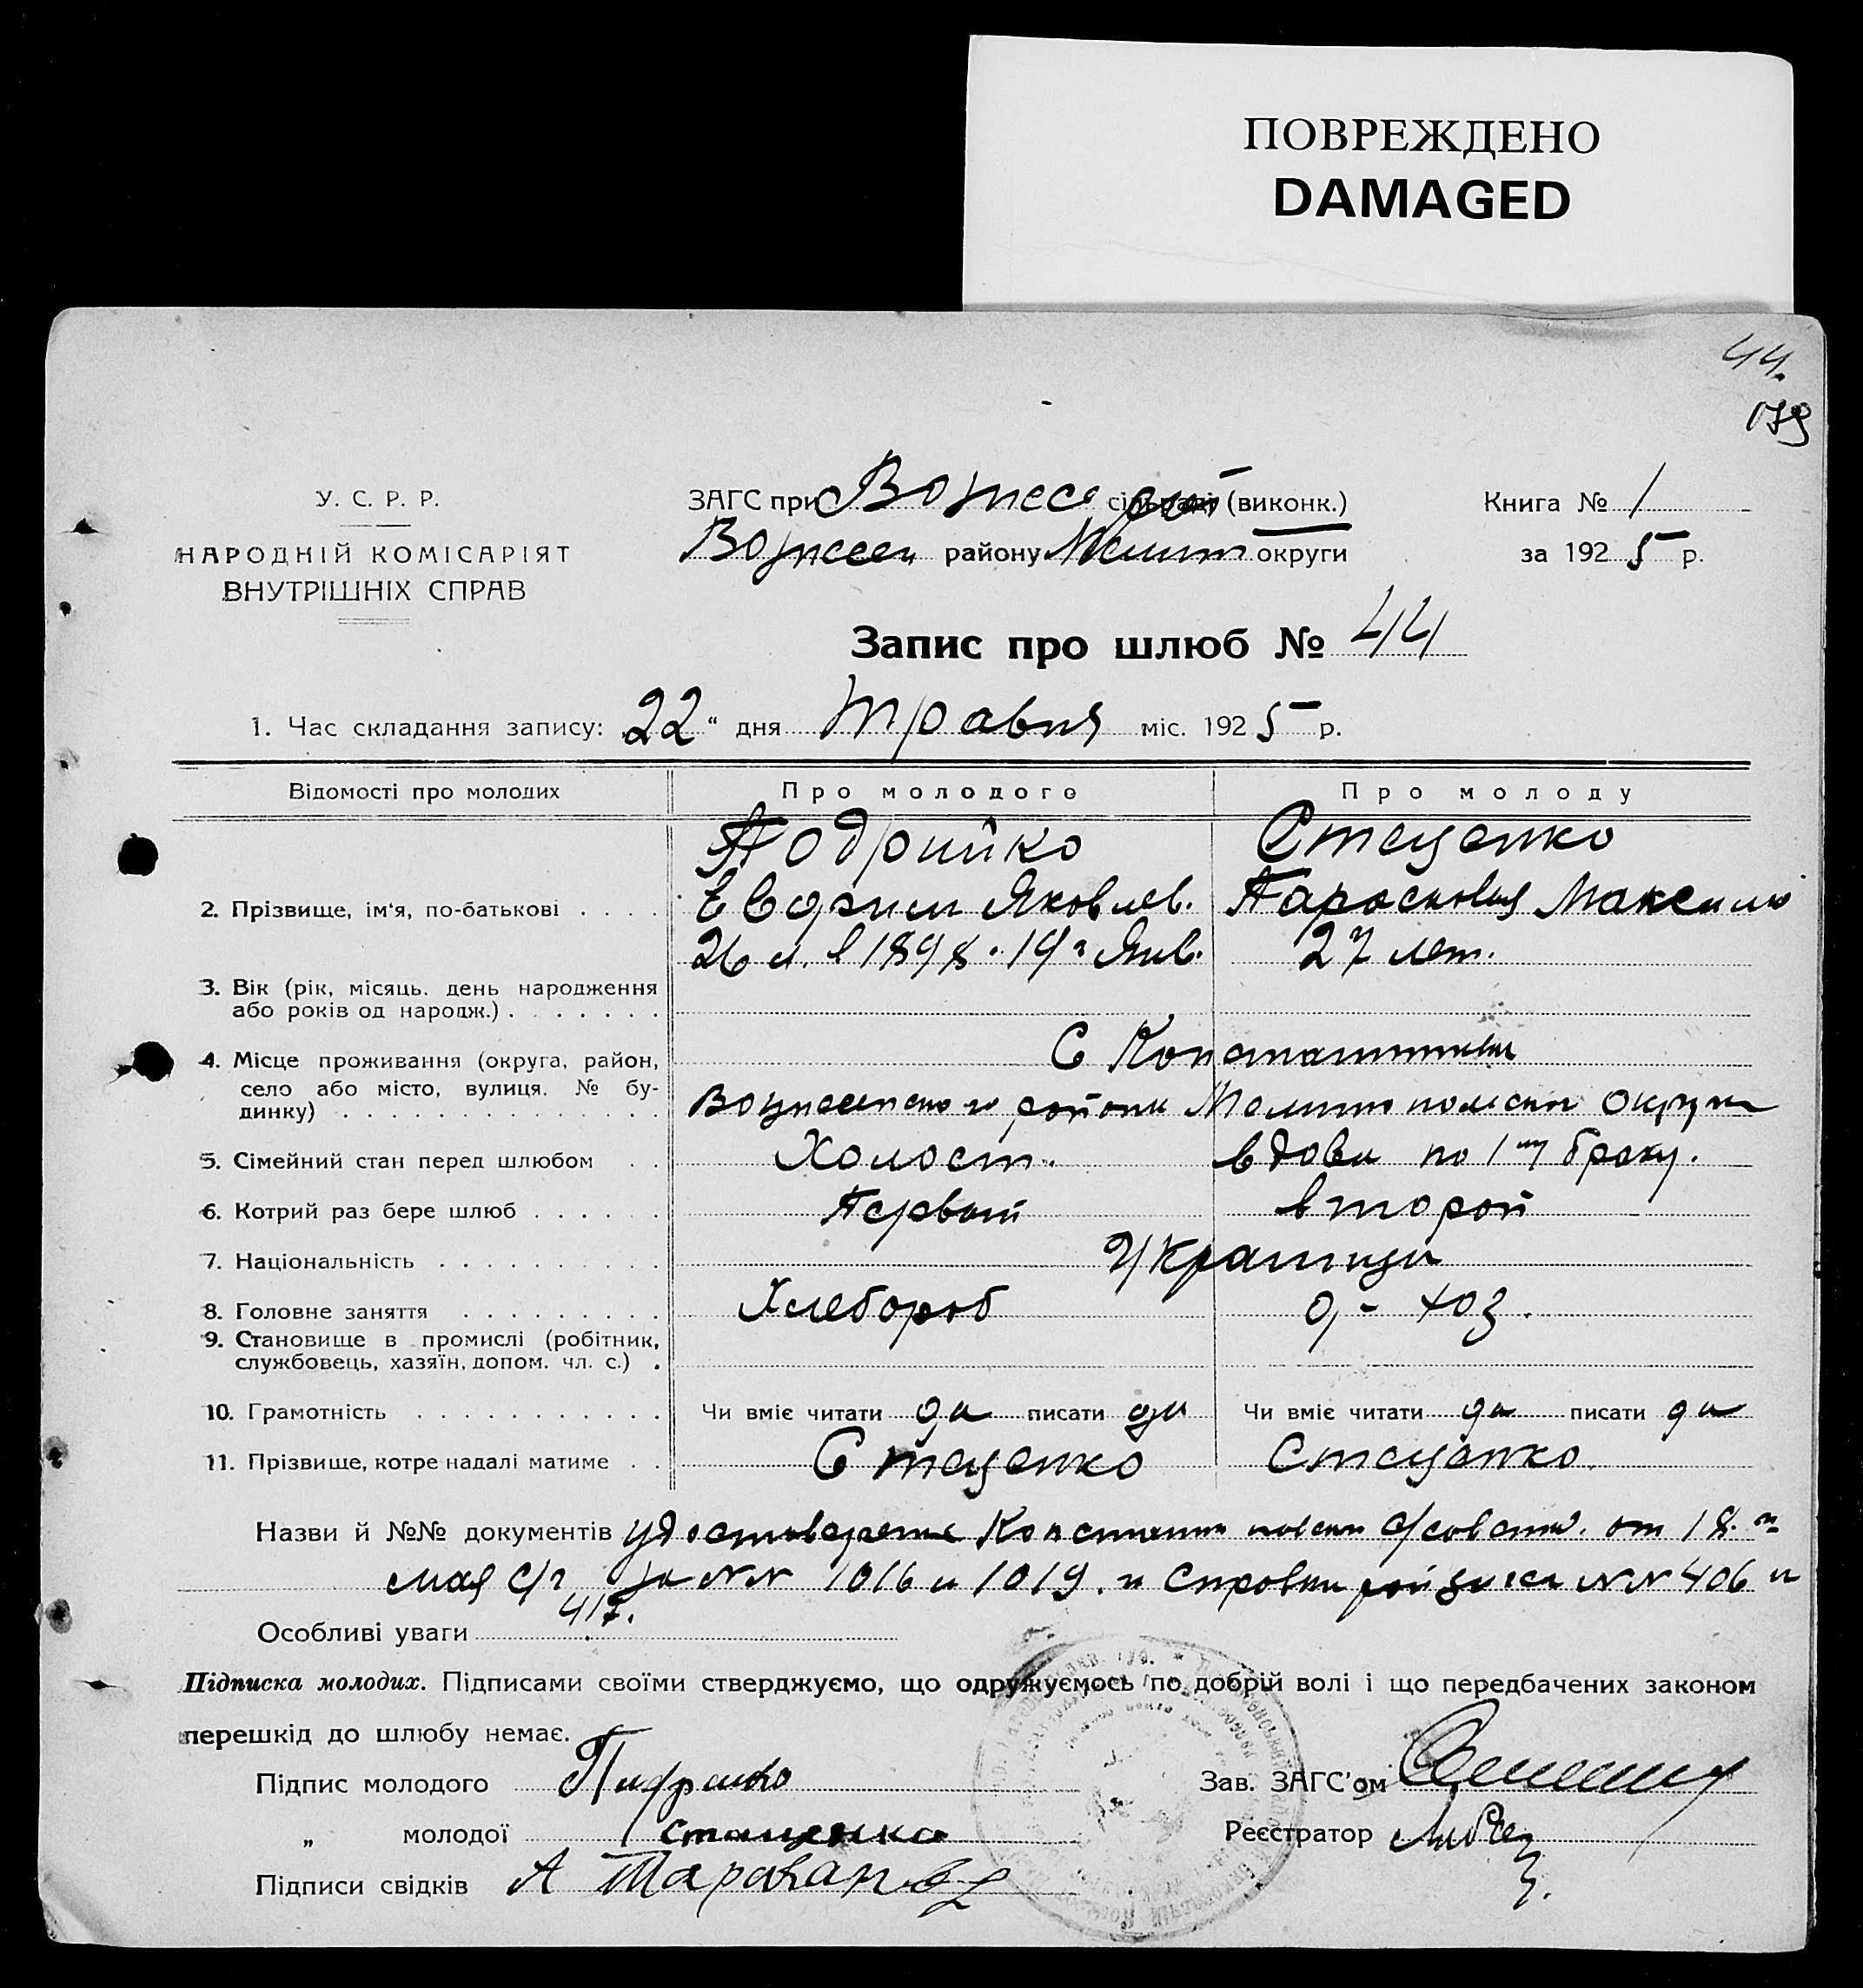 ПОВРЕЖДЕНО
DAMAGED
44.
179
У. С. Р. Р.
НАРОДНІЙ КОМІСАРІЯТ
ВНУТРІШНІХ СПРАВ
ЗАГС при Вознесе сільраді (виконк.)
Вознесен району Мелит округи
Книга № 1
за 1925 р.
Запис про шлюб № 44
1. Час складання запису: 22 “ дня травня міс. 1925 р.
Відомості про молодих
Про молодого
Про молоду
2. Прізвище, ім‘я, по-батькові . . . .
Подрийко
Евдоким Яковлев.
26 л. в 1898. 19го Янв.
Стеценко
Парасковия Максимо
27 лет.
3. Вік (рік, місяць, день народження
або років од народж.) . . . . . . .
4. Місце проживання (округа, район,
село або місто, вулиця, № бу-
динку) . . . . . . . . . . . . . .
С Константиновки
Вознесенского района Мелитопольской Округи
5. Сімейний стан перед шлюбом . .
Холост.
вдова по 1му браку.
6. Котрий раз бере шлюб . . . . . .
Первый
второй
7. Національність . . . . . . . . . .
Украинцы
8. Головне заняття . . . . . . . . .
Хлебороб
д-хоз.
9. Становище в промислі (робітник,
службовець, хазяїн, допом. чл. с.) .
10. Грамотність . . . . . . . . . . .
Чи вміє читати да писати да
Чи вміє читати да писати да
11. Прізвище, котре надалі матиме . .
Стеценко
Стеценко.
Назви й №№ документів удостоверение Константиновской с/совета. от 18.го
мая с/г за NN 1016 и 1019. и Справки NN 406 и
417.
Особливі уваги
Підписка молодих. Підписами своїми стверджуємо, що одружуємось по добрій волі і що передбачених законом
перешкід до шлюбу немає.
Підпис молодого
„ молодої Стаценка
Підписи свідків А Тараван
Зав. ЗАГС’ом
Реєстратор